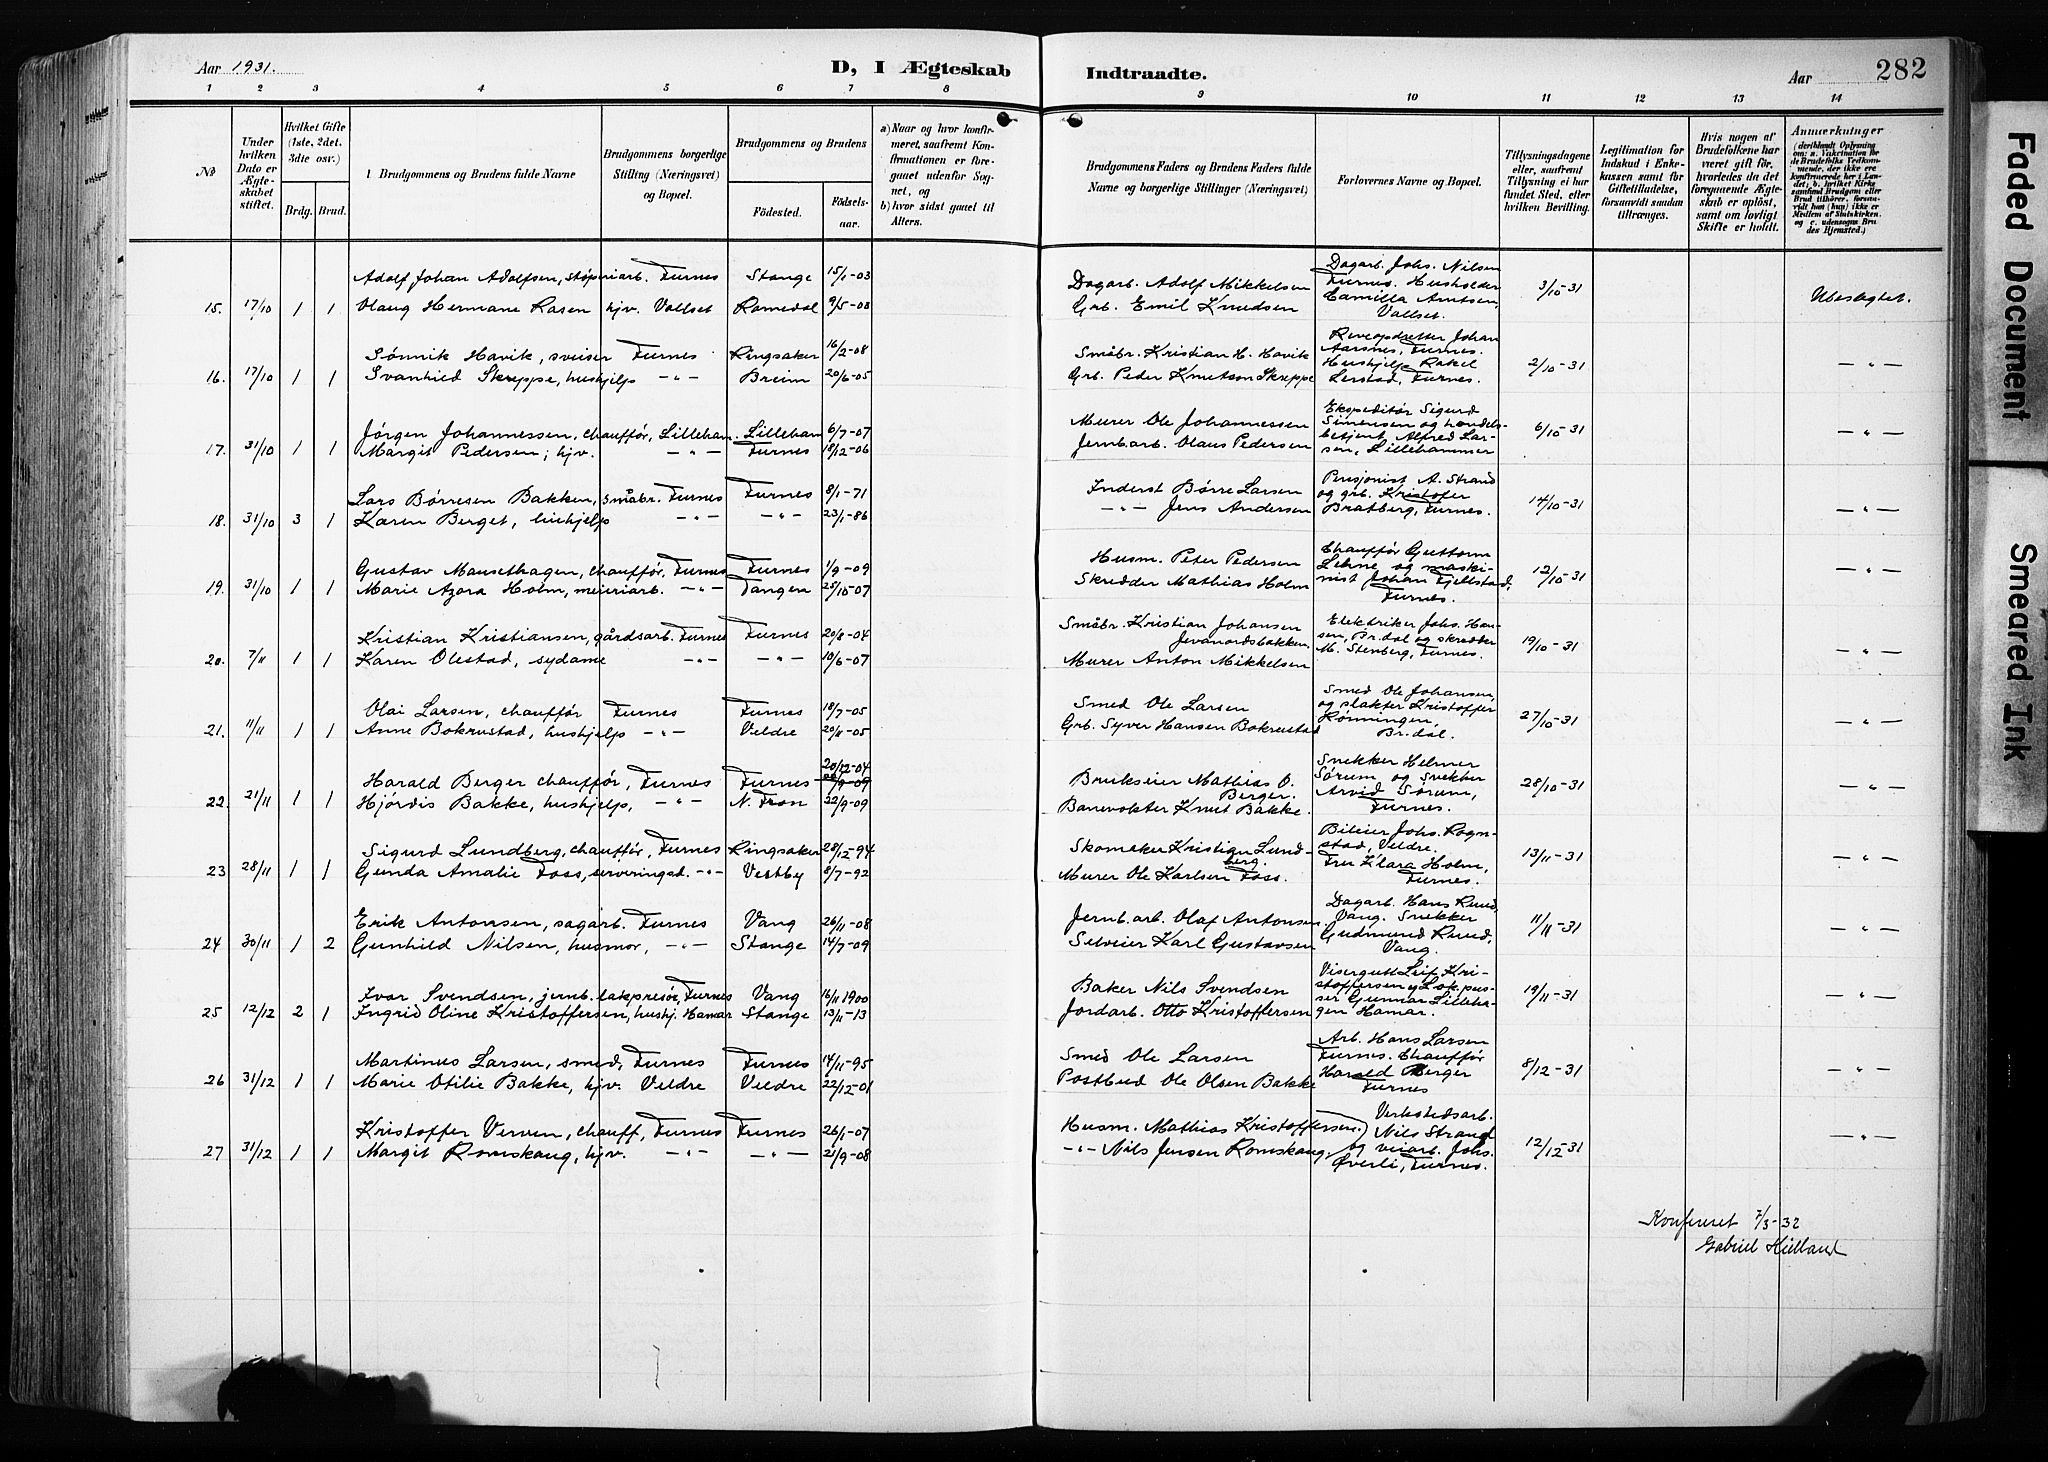 Aar 1931.
D, I Ægteskab Indtraadte.
Aar 282
1 2 3 4 5 6 7 8 9 10 11 12 13 14
No
Under hvilken Dato er Ægteskabet stiftet.
Hvilket Gifte (1ste, 2det, 3die osv.)
Brdg. Brud.
1 Brudgommens og Brudens fulde Navne
Brudgommens borgerlige Stilling (Næringsvei) og Bopæl.
Brudgommens og Brudens
Fødested. Fødselsaar.
a) Naar og hvor konfirmeret, saafremt Konfirmationen er foregaaet udenfor Sognet, og
b) hvor sidst gaaet til Alters.
Brudgommens Faders og Brudens Faders fulde Navne og borgerlige Stillinger (Næringsvei)
Forlovernes Navne og Bopæl.
Tillysningsdagene eller, saafremt Tillysning ei har fundet Sted, efter hvilken Bevilling.
Legitimation for Indskud i Enkekassen samt for Giftetilladelse, forsaavidt saadan tiltrænges.
Hvis nogen af Brudefolkene har været gift før, hvorledes da det foregaaende Ægteskab er opløst, samt om lovligt Skifte er holdt.
Anmerkninger (deriblandt Oplysning om: a. Vakcination for de Brudefolks Vedkommende, der ikke ere konfirmerede her i Landet; b. hvilket Kirkesamfund Brudgom eller Brud tilhører, forsaavidt han (hun) ikke er Medlem af Statskirken, og c. udensogns Brudes Hjemsted.)
Adolf Johan Adolfsen, støperiarb. Furnes Stange 15/1-03 Dagarb. Adolf Mikkelsen Dagarb. Johs. Nilsen Furnes. Husholder
15. 17/10 1 1 Olaug Hermane Rasen hjv. Vallset Romedal 9/5-08 Grb. Emil Knudsen Camilla Arntsen, Vallset. 3/10-31 Ubeslegtet.
Sønnik Havik, sveiser Furnes Ringsaker 16/2-08 Småbr. Kristian H. Havik Reveopdretter Johan Aarsnes, Furnes.
16. 17/10 1 1 Svanhild Skreppe, hushjelp -"- Breim 20/6-05 Grb. Peder Knutson Skreppe Hushjelp Rakel Lerstad, Furnes. 2/10-31 -"-
Jørgen Johannessen, chauffør, Lilleham. Lilleham 6/7-07 Murer Ole Johannessen Ekspeditør Sigurd Simensen og handels-
17. 31/10 1 1 Margit Pedersen, hjv. -"- Furnes 18/12-06 Jernb.arb. Olaus Pedersen betjent Alfred Larsen, Lillehammer 6/10-31 -"-
Lars Børresen Bakken, småbr. Furnes Furnes 8/1-71 Inderst Børre Larsen Pensjonist A. Strand og grb. Kristofer
18. 31/10 3 1 Karen Berget, hushjelp -"- -"- 23/1-86 -"- Jens Andersen Bratberg, Furnes. 14/10-31 -"-
Gustav Mausethagen, chauffør, Furnes Furnes 1/9-09 Husm. Peter Pedersen Chauffør Guttorm Lehne og maski-
19. 31/10 1 1 Marie Azora Holm, meieriarb. -"- Tangen 25/10-07 Skredder Mathias Holm nist Johan Fjellstad, Furnes. 12/10-31 -"-
Kristian Kristiansen, gårdsarb. Furnes Furnes 20/8-04 Småbr. Kristian Johansen Jevanordsbakken, Elektriker Johs. Hansen, Br.dal og skredder
20. 7/11 1 1 Karen Olestad, sydame -"- -"- 10/6-07 Murer Anton Mikkelsen M. Stenberg, Furnes. 19/10-31 -"-
Olai Larsen, chauffør Furnes Furnes 18/7-05 Smed Ole Larsen Smed Ole Johansen, og slakter Kristoffer
21. 11/11 1 1 Anne Bokrustad, hushjelp -"- Veldre 20/11-05 Grb. Syver Hansen Bokrustad Rønningen, Br.dal. 27/10-31 -"-
Harald Berger chauffør, Furnes Furnes 20/12-04 Brukseier Mathias O. Berger. Snekker Helmer Sørum og snekker
22. 21/11 1 1 Hjørdis Bakke, hushjelp, -"- N. Fron 22/9-09 Banevokter Knut Bakke. Arvid Sørum, Furnes. 28/10-31 -"-
Sigurd Lundberg, chauffør, Furnes Ringsaker 28/12-94 Skomaker Kristian Lundberg. Bileier Johs. Rognstad, Veldre.
23 28/11 1 1 Gunda Amalie Foss, serveringsd. -"- Vestby 8/7-92 Murer Ole Karlsen Foss. Fru Klara Holm, Furnes. 13/11-31 -"-
Erik Antonsen, sagarb. Furnes Vang 26/11-08 Jernb.arb. Olaf Antonsen Dagarb. Hans Ruud, Vang. Snekker
24 30/11 1 2 Gunhild Nilsen, husmor, -"- Stange 14/7-09 Selveier Karl Gustavsen Gudmund Ruud, Vang. 11/11-31 -"-
Ivar Svendsen, jernb. Furnes Vang 16/11 1900 Baker Nils Svendsen Visergutt Leif Kristoffersen og Lok.pus-
25 12/12 2 1 Ingrid Oline Kristoffersen, hushj. Hamar Stange 13/11-13 Jordarb. Otto Kristoffersen ser Gunnar Lillehagen Hamar. 19/11-31 -"-
Martinus Larsen, smed, Furnes Furnes 14/11-95 Smed Ole Larsen Arb. Hans Larsen Furnes. Chauffør
26 31/12 1 1 Marie Otilie Bakke, hjv. Veldre Veldre 22/12-01 Postbud Ole Olsen Bakke Harald Berger Furnes 8/12-31 -"-
Kristoffer Verven, chauff, Furnes Furnes 26/1-07 Husm. Mathias Kristoffersen. Verkstedsarb. Nils Strand
27 31/12 1 1 Margit Romskaug, hjv. -"- -"- 21/9-08 -"- Nils Jensen Romskaug, og veiarb. Johs. Øverli, Furnes. 12/12-31 -"-
Konfereret 7/3-32
Gabriel Hielland
Faded Document
Smeared Ink